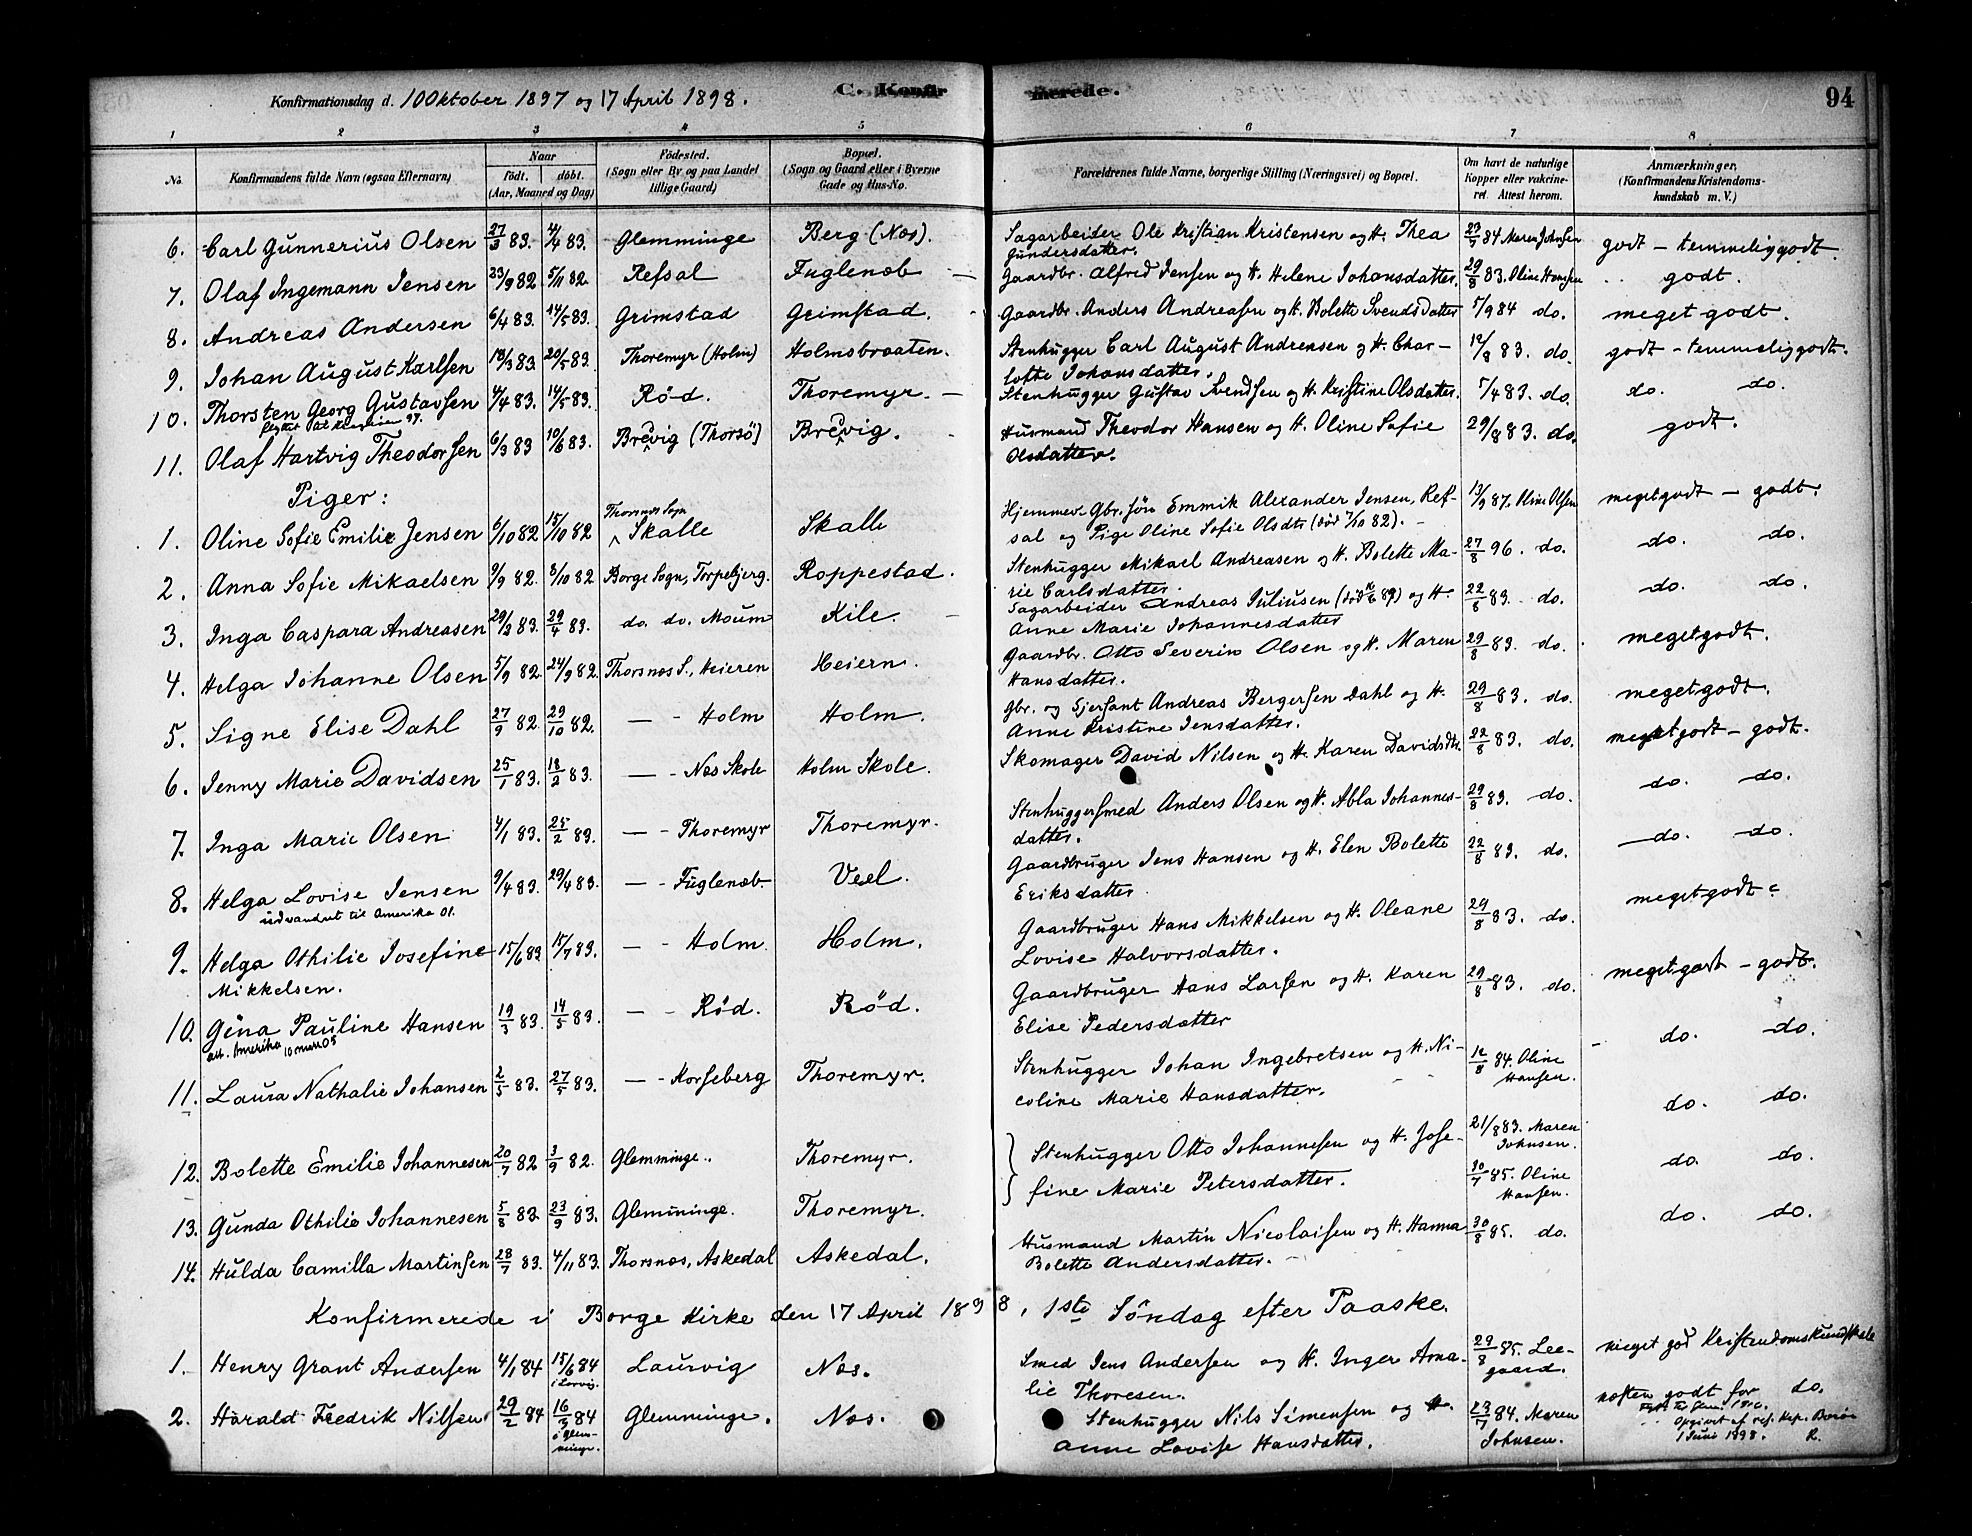 Konfirmationsdag d. 10 Oktober 1897 og 17 April 1898. C. Konfirmerede. 94
1 2 3 4 5 6 7 8
No. Konfirmandens fulde Navn (ogsaa Efternavn) Naar født. døbt. (Aar, Maaned og Dag) Fødested. (Sogn eller By og paa Landet tillige Gaard) Bopæl. (Sogn og Gaard eller i Byerne Gade og Hus-No. Forældrenes fulde Navne, borgerlige Stilling (Næringsvei) og Bopæl. Om havt de naturlige Kopper eller vakcineret. Attest herom. Anmærkninger, (Konfirmandens Kristendomskundskab m. V.)
6. Carl Gunnerius Olsen 27/3 83. 4/4 83. Glemminge Berg (Næs). Sagarbeider Ole Kristian Kristensen og H. Thea 84 Maren Johnsen godt – temmelig godt.
Gundersdatter.
7. Olaf Ingemann Jensen 23/9 82 5/11 82. Refsal Fuglenæb – Gaardbr. Alfred Jensen og H. Helene Johansdatter. 29/8 83. Oline Hansen godt.
8. Andreas Andersen 6/4 83. 14/5 83. Grimstad Grimstad. Gaardbr. Anders Andreasen og H. Bolette Svendsdatter 5/9 84 do. meget godt.
9. Johan August Karlsen 18/3 83. 20/5 83. Thoremyr (Holm) Holmsbraaten. Stenhugger Carl August Andreasen og H. Char-
lotte Johansdatter. 83. do. godt – temmelig godt.
10. Thorsten Georg Gustavsen 4/4 83. 14/5 83. Rød. Thoremyr. – Stenhugger Gustav Svendsen og H. Kristine Olsdatter. 5/4 83. do. do. do.
11. Olaf Hartvig Theodorsen 6/3 83 10/6 83. Brevig (Thorsø) Brevig. Husmand Theodor Hansen og H. Oline Sofie 29/8 83. do. godt.
Olsdatter.
Piger:
1. Oline Sofie Emilie Jensen 6/10 82 15/10 82 Thorsnæs Sogn Skalle Skalle Hjemmev. Gbr. søn Emmik Alexander Jensen, Ref- 13/9 87. Oline Olsen meget godt – godt.
sal og Pige Oline Sofie Olsdtr (død 7/10 82). –
2. Anna Sofie Mikaelsen 9/9 82. 8/10 82 Borge Sogn, Torpebjerg. Roppestad. Stenhugger Mikael Andreasen og H. Bolette Ma- 27/8 96. do. do. do.
rie Carlsdatter.
3. Inga Caspara Andreasen 29/3 83. 29/4 83. do. do. Moum Kile. – Sagarbeider Andreas Juliusen og H. 22/8 83. do. do. do.
Anne Marie Johannesdatter
4. Helga Johanne Olsen 5/9 82. 24/9 82. Thorsnæs S., Heieren Heiern. Gaardbr. Otto Severin Olsen og H. Maren 29/8 83. do. meget godt.
Hansdatter.
5. Signe Elise Dahl 27/9 82 29/10 82. – - Holm Holm. Gbr. og Sjersant Andreas Bergersen Dahl og H. 29/8 83. do. meget godt.
Anne Kristine Jensdatter.
6. Jenny Marie Davidsen 25/1 83. 18/2 83. – - Næs Skole Holm Skole. Skomager David Nilsen og H. Karen Davidsdtr. 22/8 83. do. meget godt – godt.
7. Inga Marie Olsen 4/1 83. 25/2 83. – - Thoremyr Thoremyr. Stenhuggersmed Anders Olsen og H. Abla Johannes- 29/8 83. do. do. do.
datter.
8. Helga Lovise Jensen 9/4 83. 29/4 83. – - Fuglenæb. Veel. Gaardbruger Jens Hansen og H. Elen Bolette 22/8 83. do. do. do.
udvandret til Amerika 01. Eriksdatter
9. Helga Othilie Josefine 15/6 83 15/7 83. – - Holm. Holm. Gaardbruger Hans Mikkelsen og H. Oleane 29/8 83. do. meget godt.
Mikkelsen. Lovise Halvorsdatter.
10. Gina Pauline Hansen 19/3 83. 14/5 83. – - Rød. Rød. Gaardbruger Hans Larsen og H. Karen 29/8 83. do. meget godt – godt.
att. Amerika 10 mars 05 Elise Pedersdatter
11. Laura Nathalie Johansen 2/5 83. 27/5 83. – - Korseberg Thoremyr. Stenhugger Johan Ingebretsen og H. Ni- 84. Oline Hansen. do. do.
coline Marie Hansdatter.
12. Bolette Emilie Johannesen 20/7 82 3/9 82. Glemminge. Thoremyr. Stenhugger Otto Johannesen og H. Jose- 21/8 83. Maren Johnsen. do. do.
fine Marie Petersdatter. 30/7 85. Oline Hansen. do. do.
13. Gunda Othilie Johannesen 5/8 83 23/9 83. Glemminge. Thoremyr.
14. Hulda Camilla Martinsen 28/7 83. 4/11 83. Thorsnæs, Askedal Askedal. Husmand Martin Nicolaisen og H. Hanna 30/8 85. do. do. do.
Bolette Andersdatter. –
Konfirmerede i Borge Kirke den 17 April 1898, 1ste Søndag efter Paaske.
1. Henry Grant Andersen 4/1 84 15/6 84 i Larvig. Laurvig Næs. Smed Jens Andersen og H. Inger Ama- 29/8 85. Lee- gaard. meget god Kristendomskundskab
lie Thoresen.
2. Harald Fredrik Nilsen 29/2 84 16/3 84 i Glem- minge. Glemminge. Næs. Stenhugger Nils Simensen og H. 23/7 84. Maren Johnsen. næsten godt for do.
Anne Lovise Hansdatter. Opgivet af res. Kap. 1 Juni 1898. R.